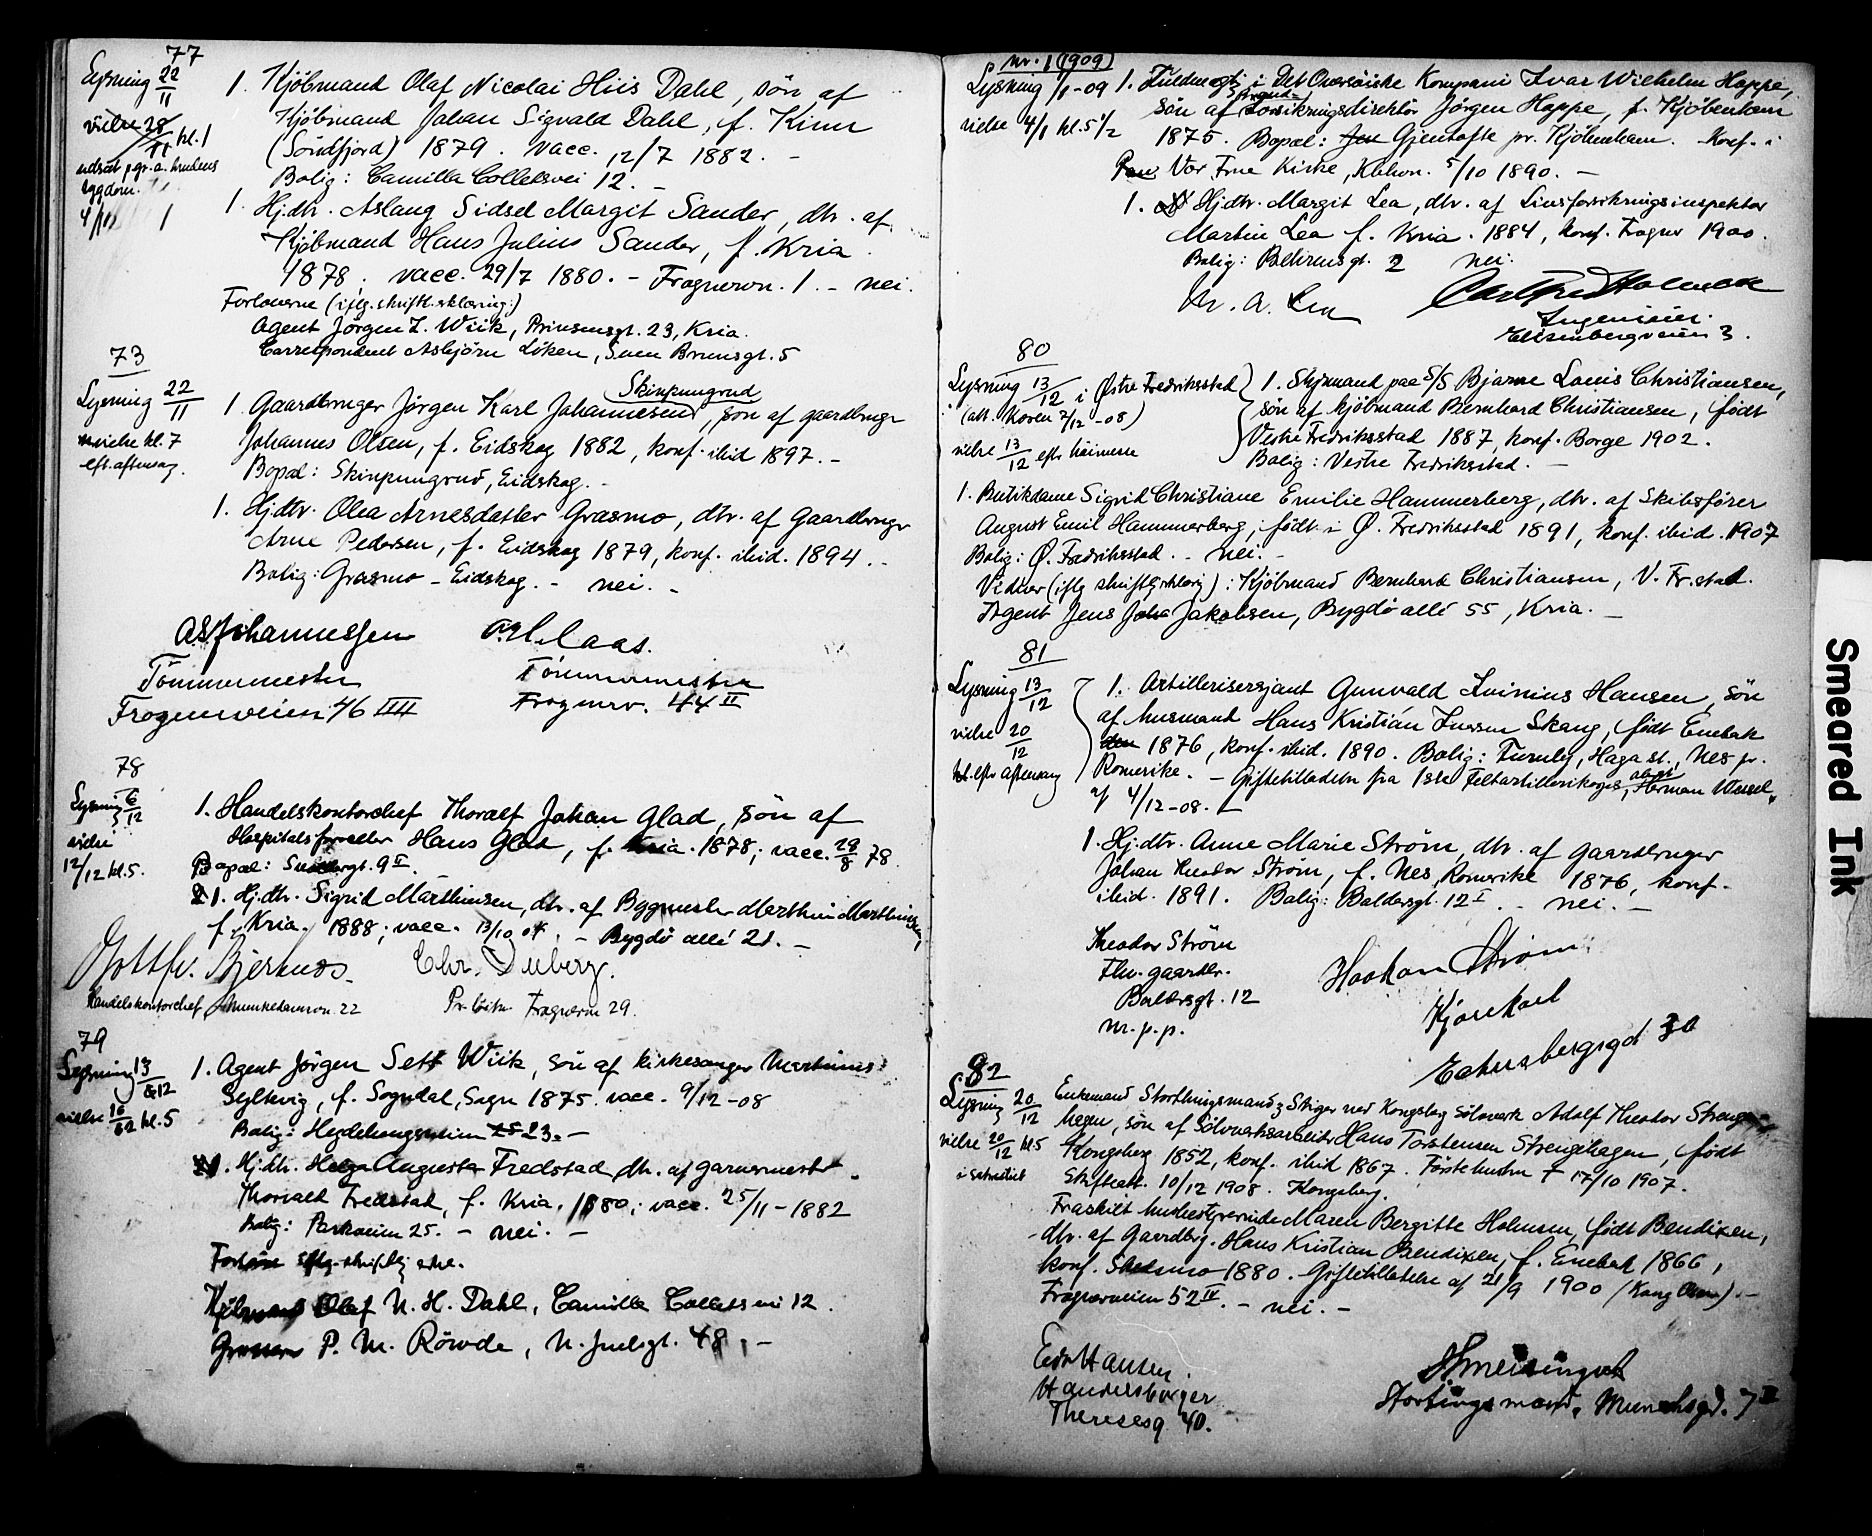 77
Lysning 22/11
vielse 28/11 kl. 1
udsat p.gr.a. brudens
sygdom.
4/12 1
1. Kjöbmand Olaf Nicolai Hiis Dahl, sön af
Kjöbmand Johan Sigvald Dahl, f. Kinn
(Söndfjord) 1879. vacc. 12/7 1882. –
Bolig: Camilla Colletsvei 12. –
1. Hj.dtr. Aslaug Sidsel Margit Sander, dtr. af
Kjöbmand Hans Julius Sander, f. Kria
1878. vacc. 29/7 1880. – Frognerv. 1. – nei.
Forloverne (iflg. skriftl. erklæring:)
Agent Jörgen L. Wiik, Prinsensgt. 23, Kria.
Correspondent Asbjörn Löken, Sven Brunsgt. 5
73
Lysning 22/11
vielse kl. 7
eft. aftensag.
Skinpungrud
1. Gaardbruger Jörgen Karl Johannesen, sön af gaardbruger
Johannes Olsen, f. Eidskog 1882, konf. ibid 1897. –
Bopæl: Skinpungrud, Eidskog. –
1. Hj.dtr. Olea Arnesdatter Grasmo, dtr. af Gaardbruger
Arne Pedersen, f. Eidskog 1879, konf. ibid. 1894. –
Bolig: Grasmo – Eidskog. – nei. –
A. Johannessen
Tömmermester
Frognerveien 46 IIII
Tömmermester
Frognerv. 44 II
78
Lysning 6/12
vielse
12/12 kl. 5.
1. Handelskontorchef Thoralf Johan Glad, sön af
Hospitalsforvalter Hans Glad, f. Kria. 1878; vacc. 29/8 78
Bopæl: 9 II.
1. Hj.dtr. Sigrid Marthinsen, dtr. af Bygmester Marthin Marthinsen,
f. Kria. 1888; vacc. 13/10 04. – Bygdö allé 21. –
Gottfr. Bjerknes. Chr. Duberg.
Handelskontorchef, Munkedamsvn. 22
Frognervn 29.
79
Lysning 13/12
vielse 16/12 kl. 5
1. Agent Jörgen Sett Wiik, sön af kirkesanger Martinus
Syltevig, f. Sogndal, Sogn 1875. vacc. 9/12-08
Bolig: Hegdehaugsveien 23. –
1. Hj.dtr. Helga Augusta Fredstad, dtr. af garvermester
Thorvald Fredstad, f. Kria. 1880; vacc. 25/11-1882
Bolig: Parkveien 25. – nei. –
Forlovere iflg. skriftlig erkl.
Kjöbmand Olaf N. H. Dahl, Camilla Colletsvei 12.
Grosserer P. M. Röwde, N. Juelsgt. 48. –
nr. 1 (1909)
Lysning 1/1-09
vielse 4/1 kl. 5 1/2
1. Fuldmægtig i Det Oversöiske Kompani Ivar Wilhelm Hoppe,
sön af Brand-Forsikringsdirektör Jörgen Hoppe, f. Kjöbenhavn
1875. Bopæl: Gjentofte pr. Kjöbenhavn. Konf. i
Vor Frue Kirke, Kbhvn. 5/10 1890. –
1. Hj.dtr. Margit Lea, dtr. af Livsforsikringsinspektör
Martin Lea f. Kria. 1884, konf. Frogner 1900.
Bolig: Behrensgt. 2 nei.
M. A. Lea
Ingeniör.
Eilersenbergveien 3.
80
Lysning 13/12 i Östre Fredriksstad
(att. Koren 7/12-08)
vielse 13/12 eftr höimesse
1. Styrmand paa S/S Bjarne Louis Christiansen,
sön af kjöbmand Bernhard Christiansen, födt
Vestre Fredriksstad 1887, konf. Borge 1902.
Bolig: Vestre Fredriksstad. –
1. Butikdame Sigrid Christiane Emilie Hammerberg, dtr. af Skibsförer
August Emil Hammerberg, födt i Ö. Fredriksstad 1891, konf. ibid. 1907
Bolig: Ö. Fredriksstad. – nei. –
Vidner (iflg skriftlig erklæring): Kjöbmand Bernhard Christiansen, V. Fr.stad.
Agent Jens Jakobsen, Bygdö allé 55, Kria. –
81
Lysning 13/12
vielse 20/12
kl. eftr aftensang
1. Artillerisersjant Gunvald Luinius Hansen, sön
af husmand Hans Kristian Iversen Skaug, födt Enebak
1876, konf. ibid. 1890. Bolig: Furuly, Haga st., Nes pr.
Romerike. – Giftetilladelse fra 1ste Feltartillerikorps, Herman Wessel,
af 4/12-08. –
1. Hj.dtr. Anne Marie Ström, dtr. af gaardbruger
Johan Theodor Ström, f. Nes, Romerike 1876, konf.
ibid. 1891. Bolig: Baldersgt. 12 I. – nei. –
Theodor Ström
Fhv. gaardbr.
Baldersgt. 12
m. p. p.
Haakon Ström
Kjörekarl
Eckersbergsgd 30
82
Lysning 20/12
vielse 20/12 kl. 5
i sakristiet
Enkemand Storthingsmand, Stiger ved Kongsberg Sölvverk Adolf Theodor Strenge-
hagen, sön af Sölvverksarbeider Hans Torstensen Strengehagen, födt
Kongsberg 1852, konf. ibid 1867. Förstehustru † 17/10 1907.
Skifteatt. 10/12 1908. Kongsberg.
Fraskilt husbestyrerinde Maren Bergitte Holmsen, födt Bendixen,
dtr. af Gaardbrg. Hans Kristian Bendixen, f. Enebak 1866,
konf. Skedsmo 1880. Giftetilladelse af 21/9 1900 (Kong Oscar). –
Frognerveien 52 IV. – nei. –
Edv. Hansen
Handelsborger
Theresesg 40.
Stortingsmand, Munchsgd. 7 II
Smeared Ink